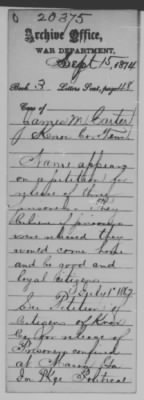 20375
Archive Office,
WAR DEPARTMENT,
Sept 15, 1874
Book 3 Letters Sent, page 48
Case of
James M Carter
of Knox Co Tenn
Name appears
on a petition for
release of three
prisoners. They
believe if prisoners
were released they
would come home
and be good and
loyal citizens
July 1" 186
See Petition of
Citizens of Knox
Co for release of
Prisoners confined
at Macon, Ga
In Pkge Political